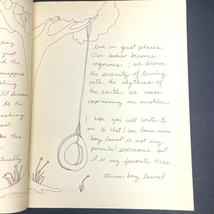 live in quiet places.
Our bodies become
vigorous; we discover
the serenity of living
with the rhythms of
the earth. We cease
oppressing one another.
I hope you will write to
me so that I can learn more
bay laurel is not my
parents' surname but
it is my favorite tree.
Alicia bay laurel